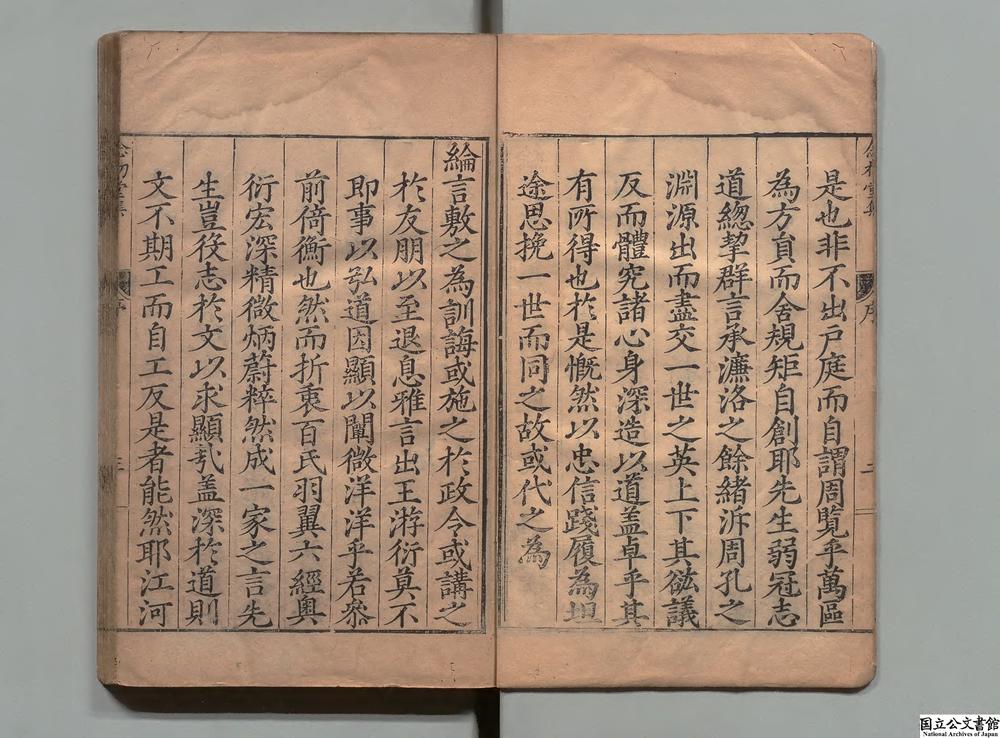 是也非不出戸庭而自謂周覽乎萬區
為方員而舍規矩自創耶先生弱冠志
道緫挈群言承濂洛之餘緒泝周孔之
淵源出而盡交一世之英上下其議
反而體究諸心身深造以道盖卓乎其
有所得也於是慨然以忠信踐履為坦
途思挽一世而同之故或代之為
綸言敷之為訓誨或施之於政令或講之
於友朋以至退息雅言出王游衍真不
即事以弘道因顯以闡微洋洋乎若叅
前倚衡也然而折衷百氏羽翼六經奥
衍宏深精微炳蔚粹然成一家之言先
生豈役志於文以求顯㢤盖深於道則
文不期工而自工反是者能然耶江河
序
二
序
三
国立公文書館
National Archives of Japan